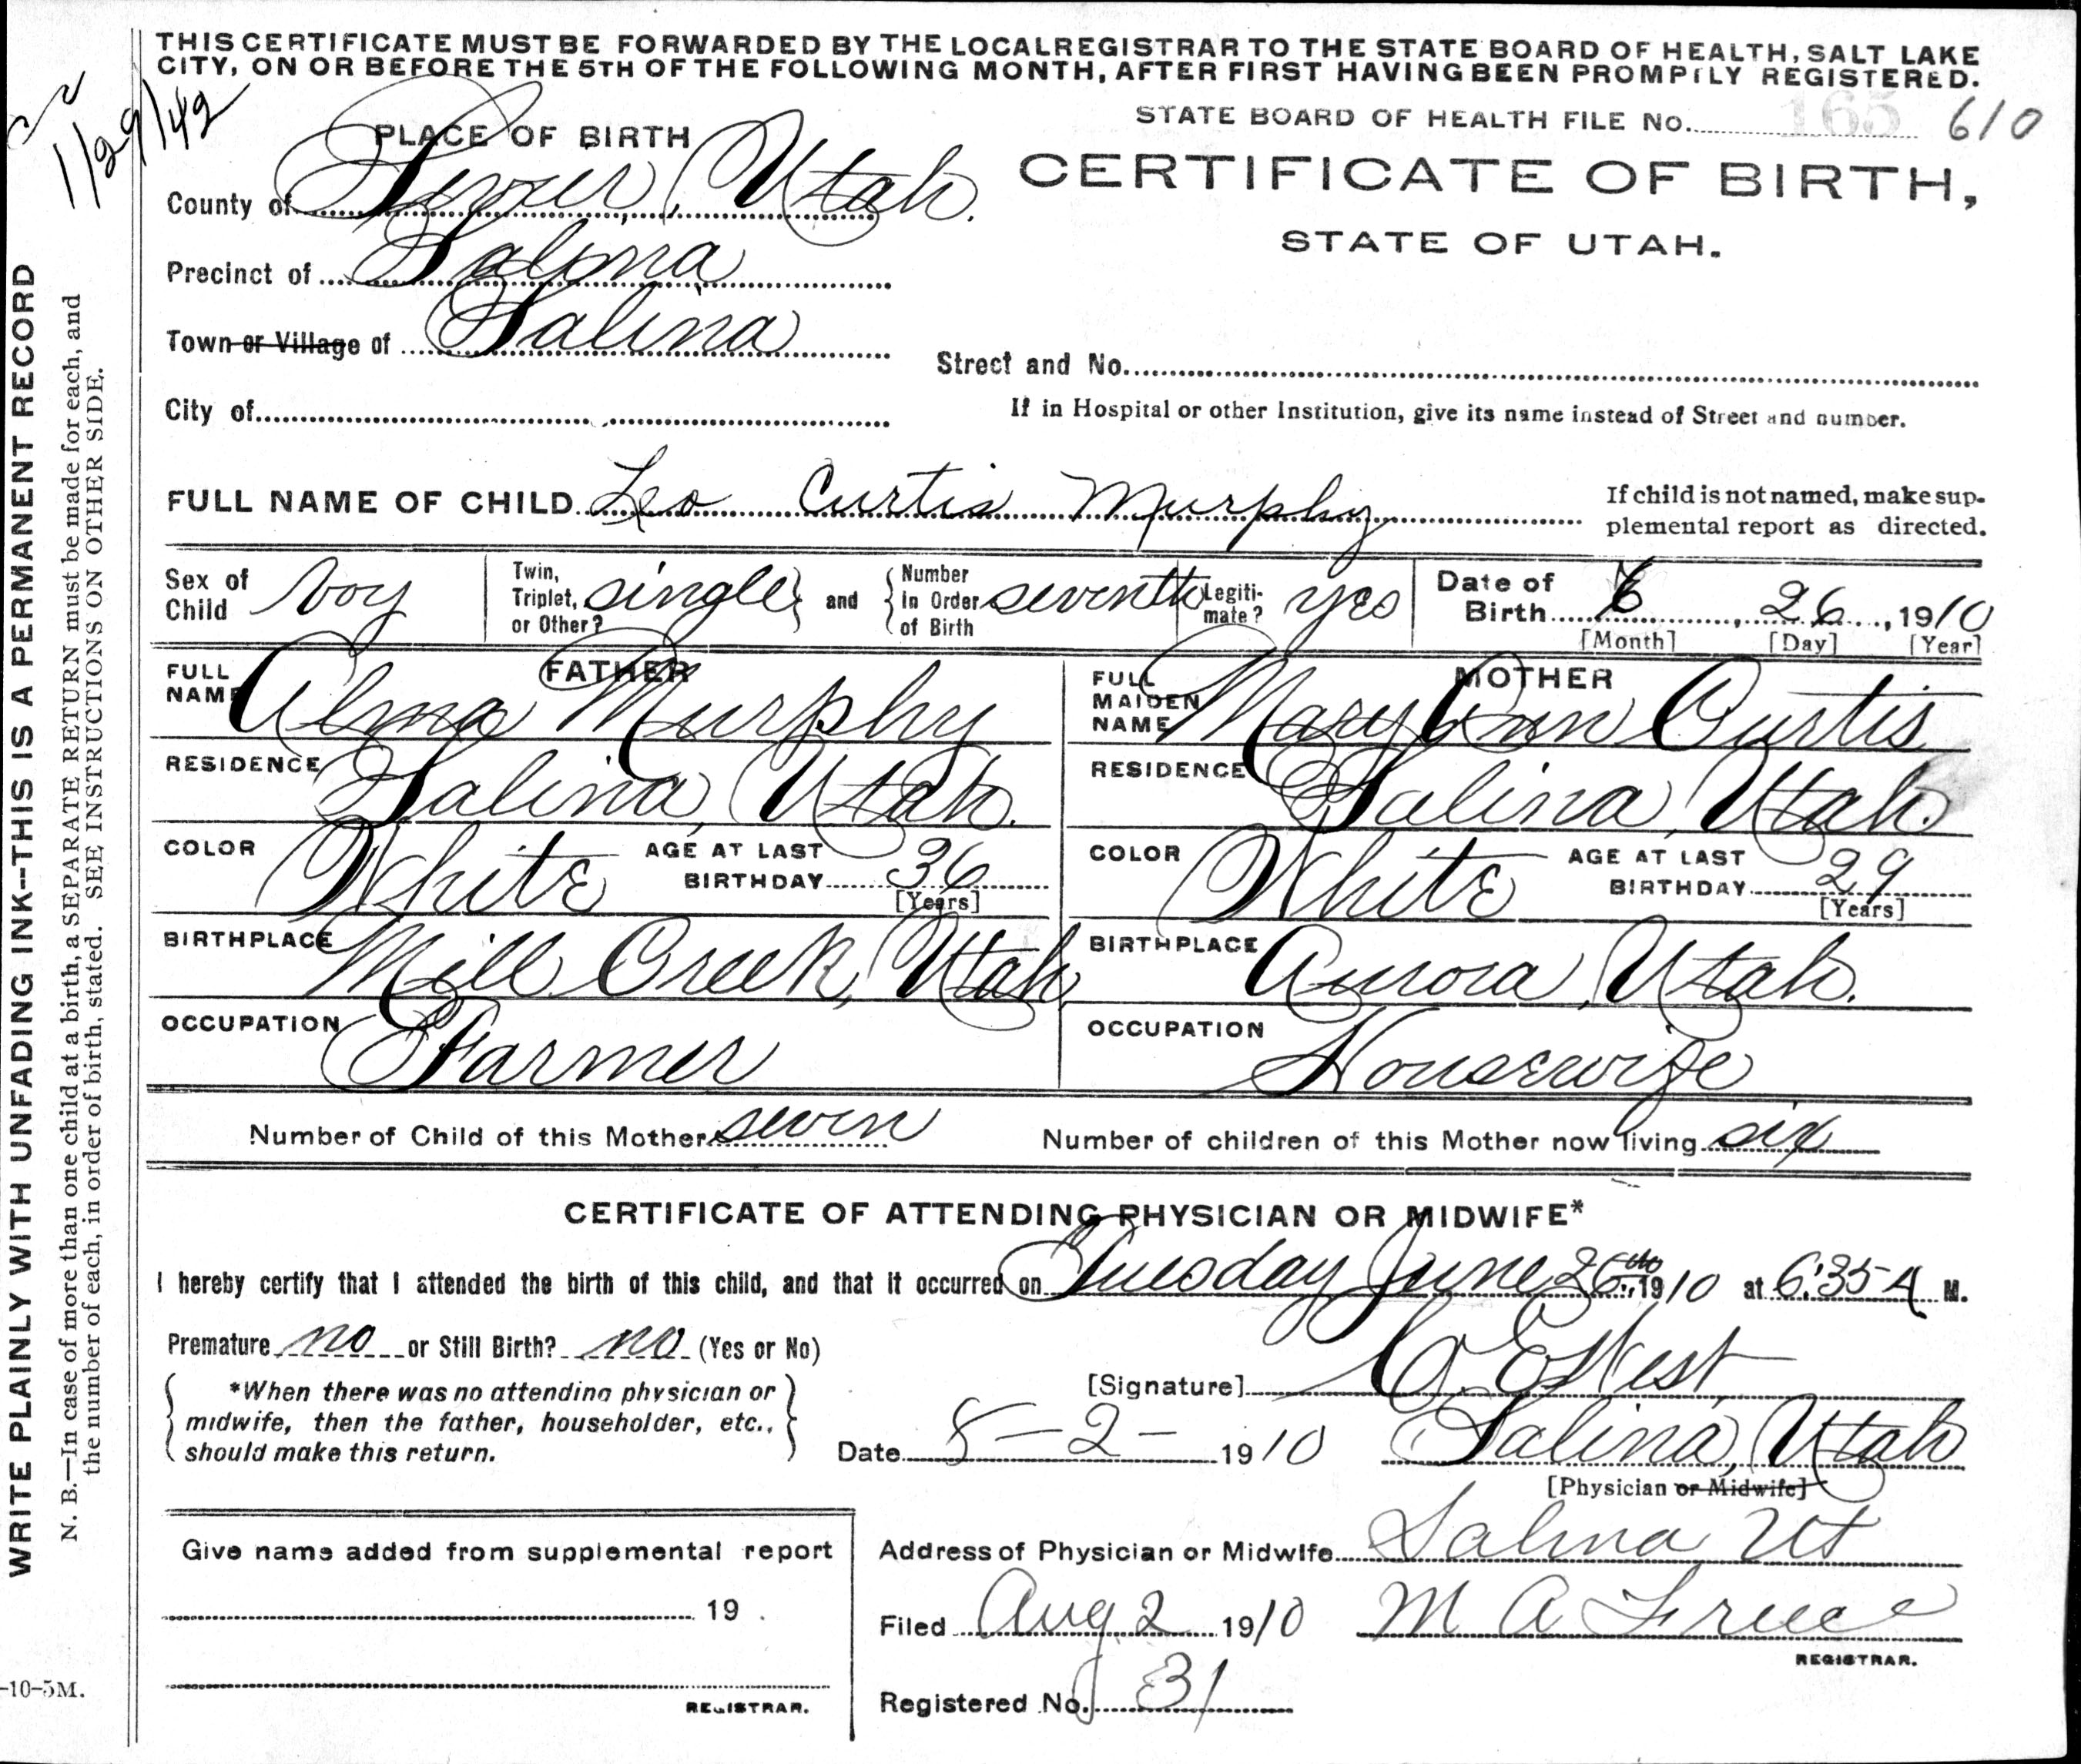 THIS CERTIFICATE MUST BE FORWARDED BY THE LOCAL REGISTRAR TO THE STATE BOARD OF HEALTH, SALT LAKE
CITY, ON OR BEFORE THE 5TH OF THE FOLLOWING MONTH, AFTER FIRST HAVING BEEN PROMPTLY REGISTERED.
1/29/42
STATE BOARD OF HEALTH FILE No. 165 610
PLACE OF BIRTH
CERTIFICATE OF BIRTH,
County of Sevier, Utah.
STATE OF UTAH.
Precinct of Salina
Town or Village of Salina
Street and No.
City of
If in Hospital or other Institution, give its name instead of Street and number.
FULL NAME OF CHILD Leo Curtis Murphy
If child is not named, make sup-
plemental report as directed.
Sex of Child boy
Twin, Triplet, or Other? single and Number in Order of Birth seventh
Legiti-mate? yes
Date of Birth 6, 26, 1910
[Month] [Day] [Year]
FATHER
FULL NAME Alma Murphy
MOTHER
FULL MAIDEN NAME Mary Ann Curtis
RESIDENCE Salina, Utah.
RESIDENCE Salina, Utah.
COLOR White AGE AT LAST BIRTHDAY 36 [Years]
COLOR White AGE AT LAST BIRTHDAY 29 [Years]
BIRTHPLACE Mill Creek, Utah,
BIRTHPLACE Aurora, Utah.
OCCUPATION Farmer
OCCUPATION Housewife
Number of Child of this Mother seven
Number of children of this Mother now living six
CERTIFICATE OF ATTENDING PHYSICIAN OR MIDWIFE*
I hereby certify that I attended the birth of this child, and that it occurred on Tuesday June 26th, 1910 at 6:35 A M.
Premature no or Still Birth? no (Yes or No)
*When there was no attending physician or
midwife, then the father, householder, etc.,
should make this return.
[Signature] C. E. West
Date 8-2- 1910
Salina, Utah
[Physician or Midwife]
Give name added from supplemental report
19 .
REGISTRAR.
Address of Physician or Midwife Salina Ut
Filed Aug 2 1910 M A
REGISTRAR.
Registered No. 31
WRITE PLAINLY WITH UNFADING INK--THIS IS A PERMANENT RECORD
N. B.—In case of more than one child at a birth, a SEPARATE RETURN must be made for each, and
the number of each, in order of birth, stated. SEE INSTRUCTIONS ON OTHER SIDE.
-10-5M.